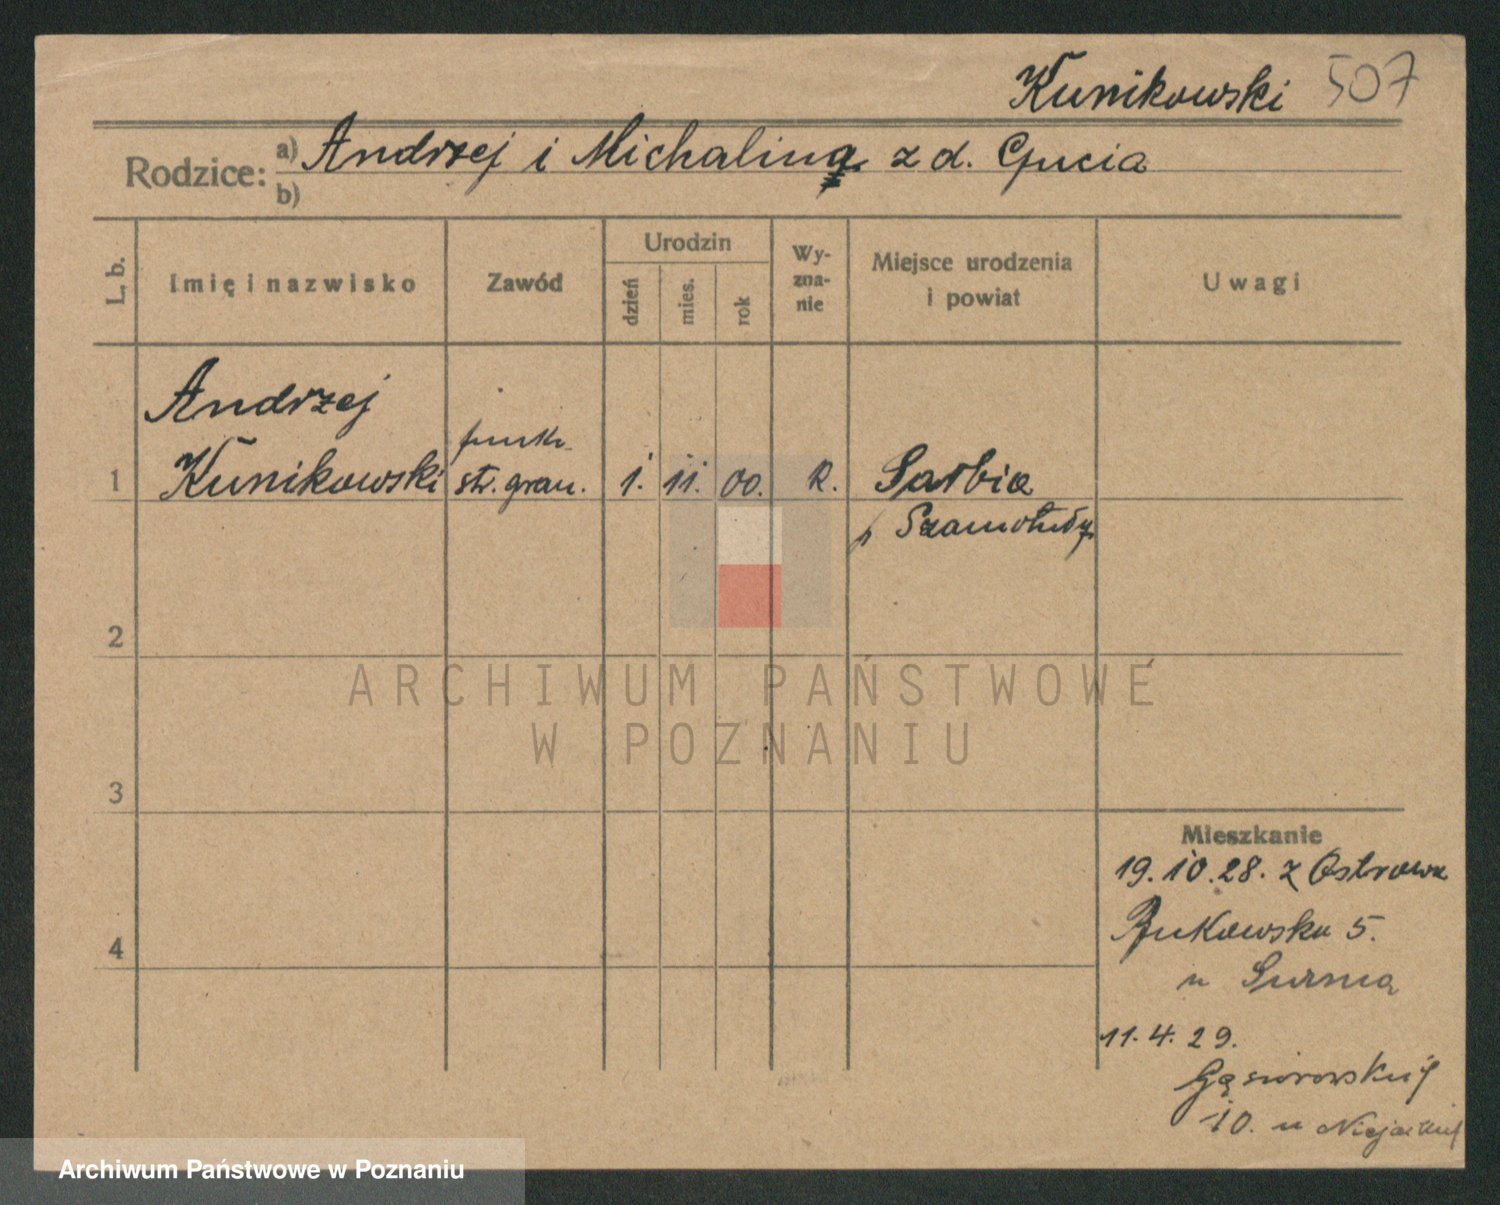 Kunikowski 507
Rodzice: a) Andrzej i Michalina z d. Gucia
b)
L. b. Imię i nazwisko Zawód Urodzin dzień mies. rok Wyznanie Miejsce urodzenia i powiat Uwagi
Andrzej
funkc.
1 Kunikowski str. gran. 1. 11. 00. R. Sarbia
p Szamotuły
2
ARCHIWUM PAŃSTWOWE
W POZNANIU
3
Mieszkanie
19.10.28. z Ostrowa
Bukowska 5.
4
u Surma
11.4.29.
Gąsiorowskich
10. u
Archiwum Państwowe w Poznaniu